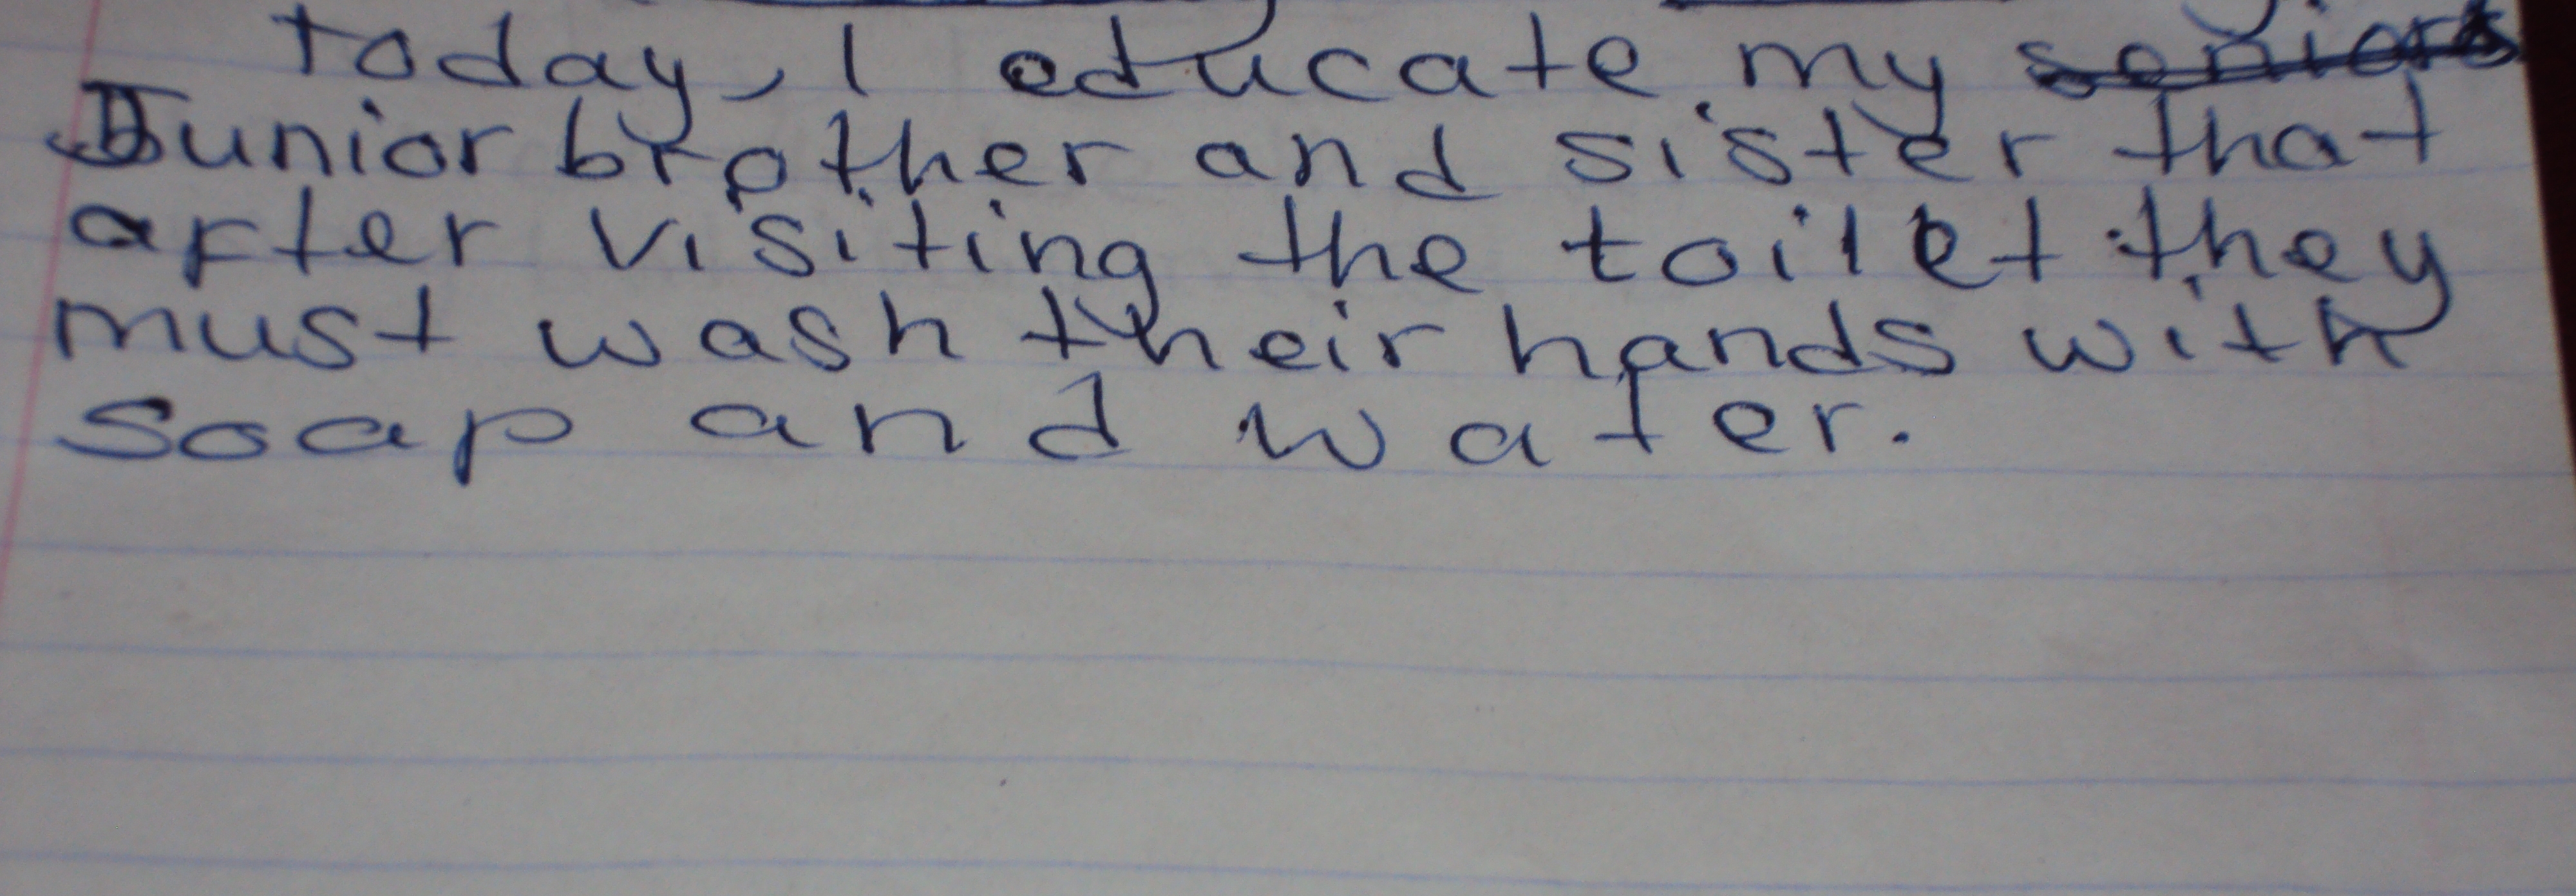 today, I educate my seniors
Junior brother and sister that
after visiting the toilet they
must wash their hands with
Soap and water.